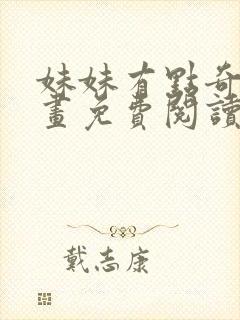 妹妹有點奇
畫免費閱讀
戴志康